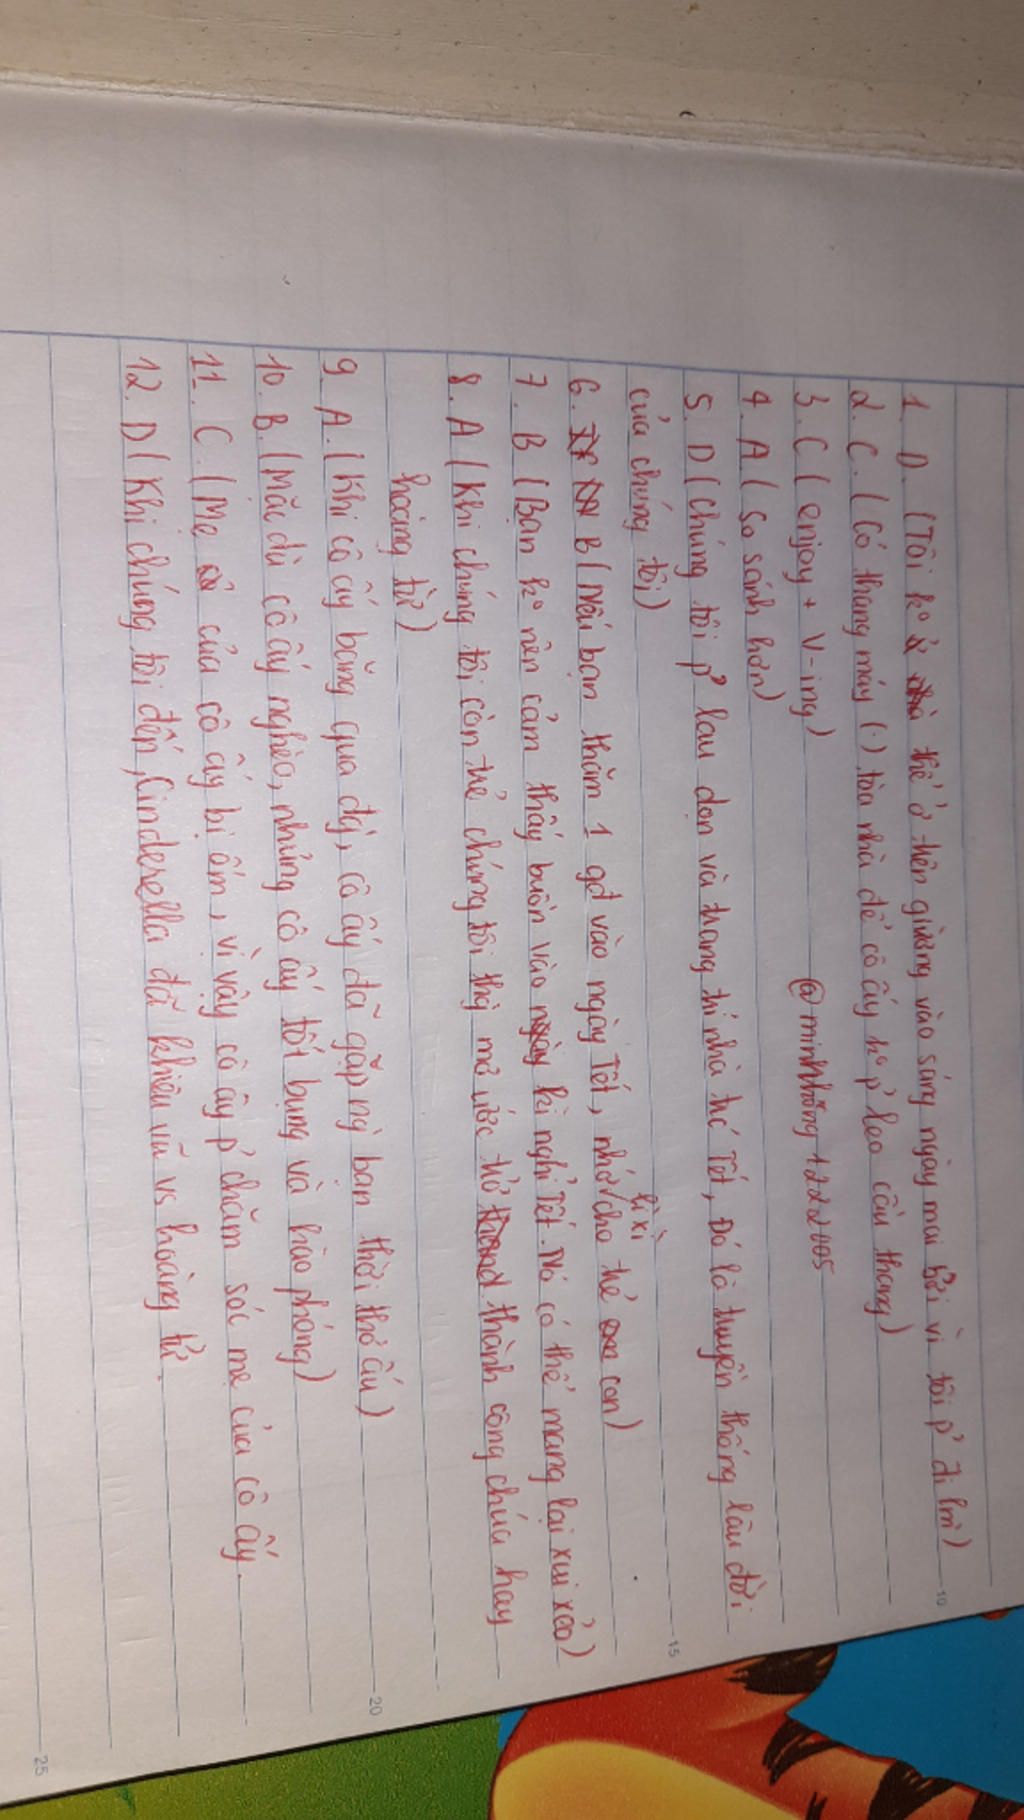 1. D. (Tôi ko thể ở trên giường vào sáng ngày mai bởi vì tôi p' đi lm)
2. C. (Có thang máy (.) tòa nhà để cô ấy ko p' leo cầu thang)
3. C (enjoy + V-ing)
@minhhong1222005
4. A (so sánh hơn)
5. D (Chúng tôi p' lau dọn và trang trí nhà trc Tết, Đó là truyền thống lâu đời
của chúng tôi)
6. B (Nếu bạn thăm 1 gđ vào ngày Tết, nhớ lì xì cho trẻ con)
7. B (Bạn ko nên cảm thấy buồn vào kì nghỉ Tết. Nó có thể mang lại xui xẻo)
8. A (Khi chúng tôi còn trẻ chúng tôi thg mơ ước trở thành công chúa hay
hoàng tử)
9. A. (Khi cô ấy băng qua đg, cô ấy đã gặp ng bạn thời thơ ấu)
10. B. (Mặc dù cô ấy nghèo, nhưng cô ấy tốt bụng và hào phóng)
11. C. (Mẹ của cô ấy bị ốm, vì vậy cô ấy p' chăm sóc mẹ của cô ấy.
12. D (Khi chúng tôi đến, Cinderella đã khiêu vũ vs hoàng tử.
10
15
20
25